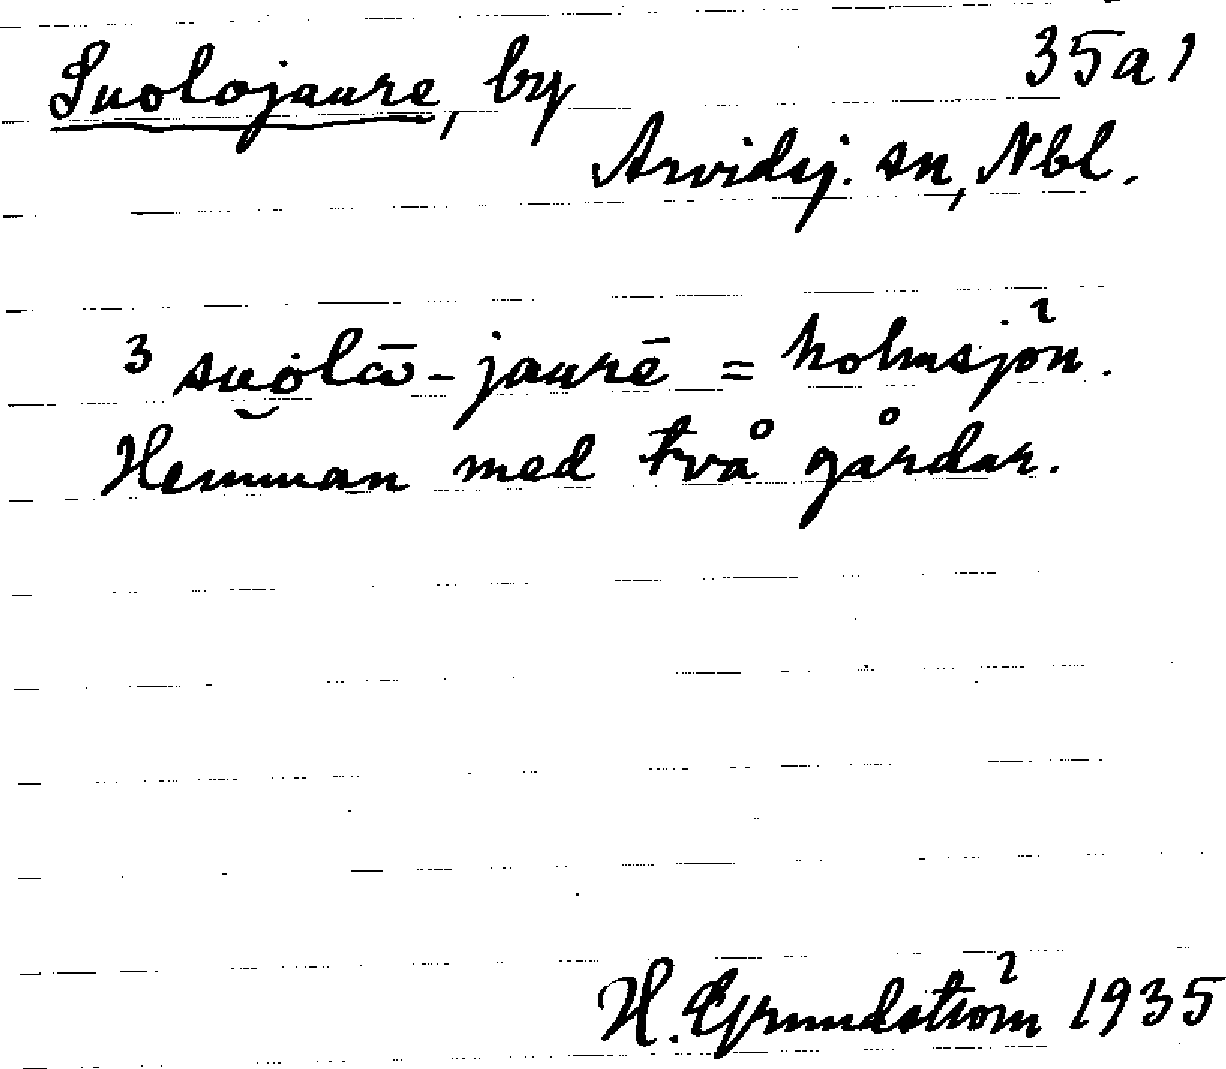 Suolojaure, by 35a1
Arvidsj. sn, Nbl.
³ su̯ȯlā-jaurē = holmsjön.
Hemman med två gårdar.
H. Grundström 1935